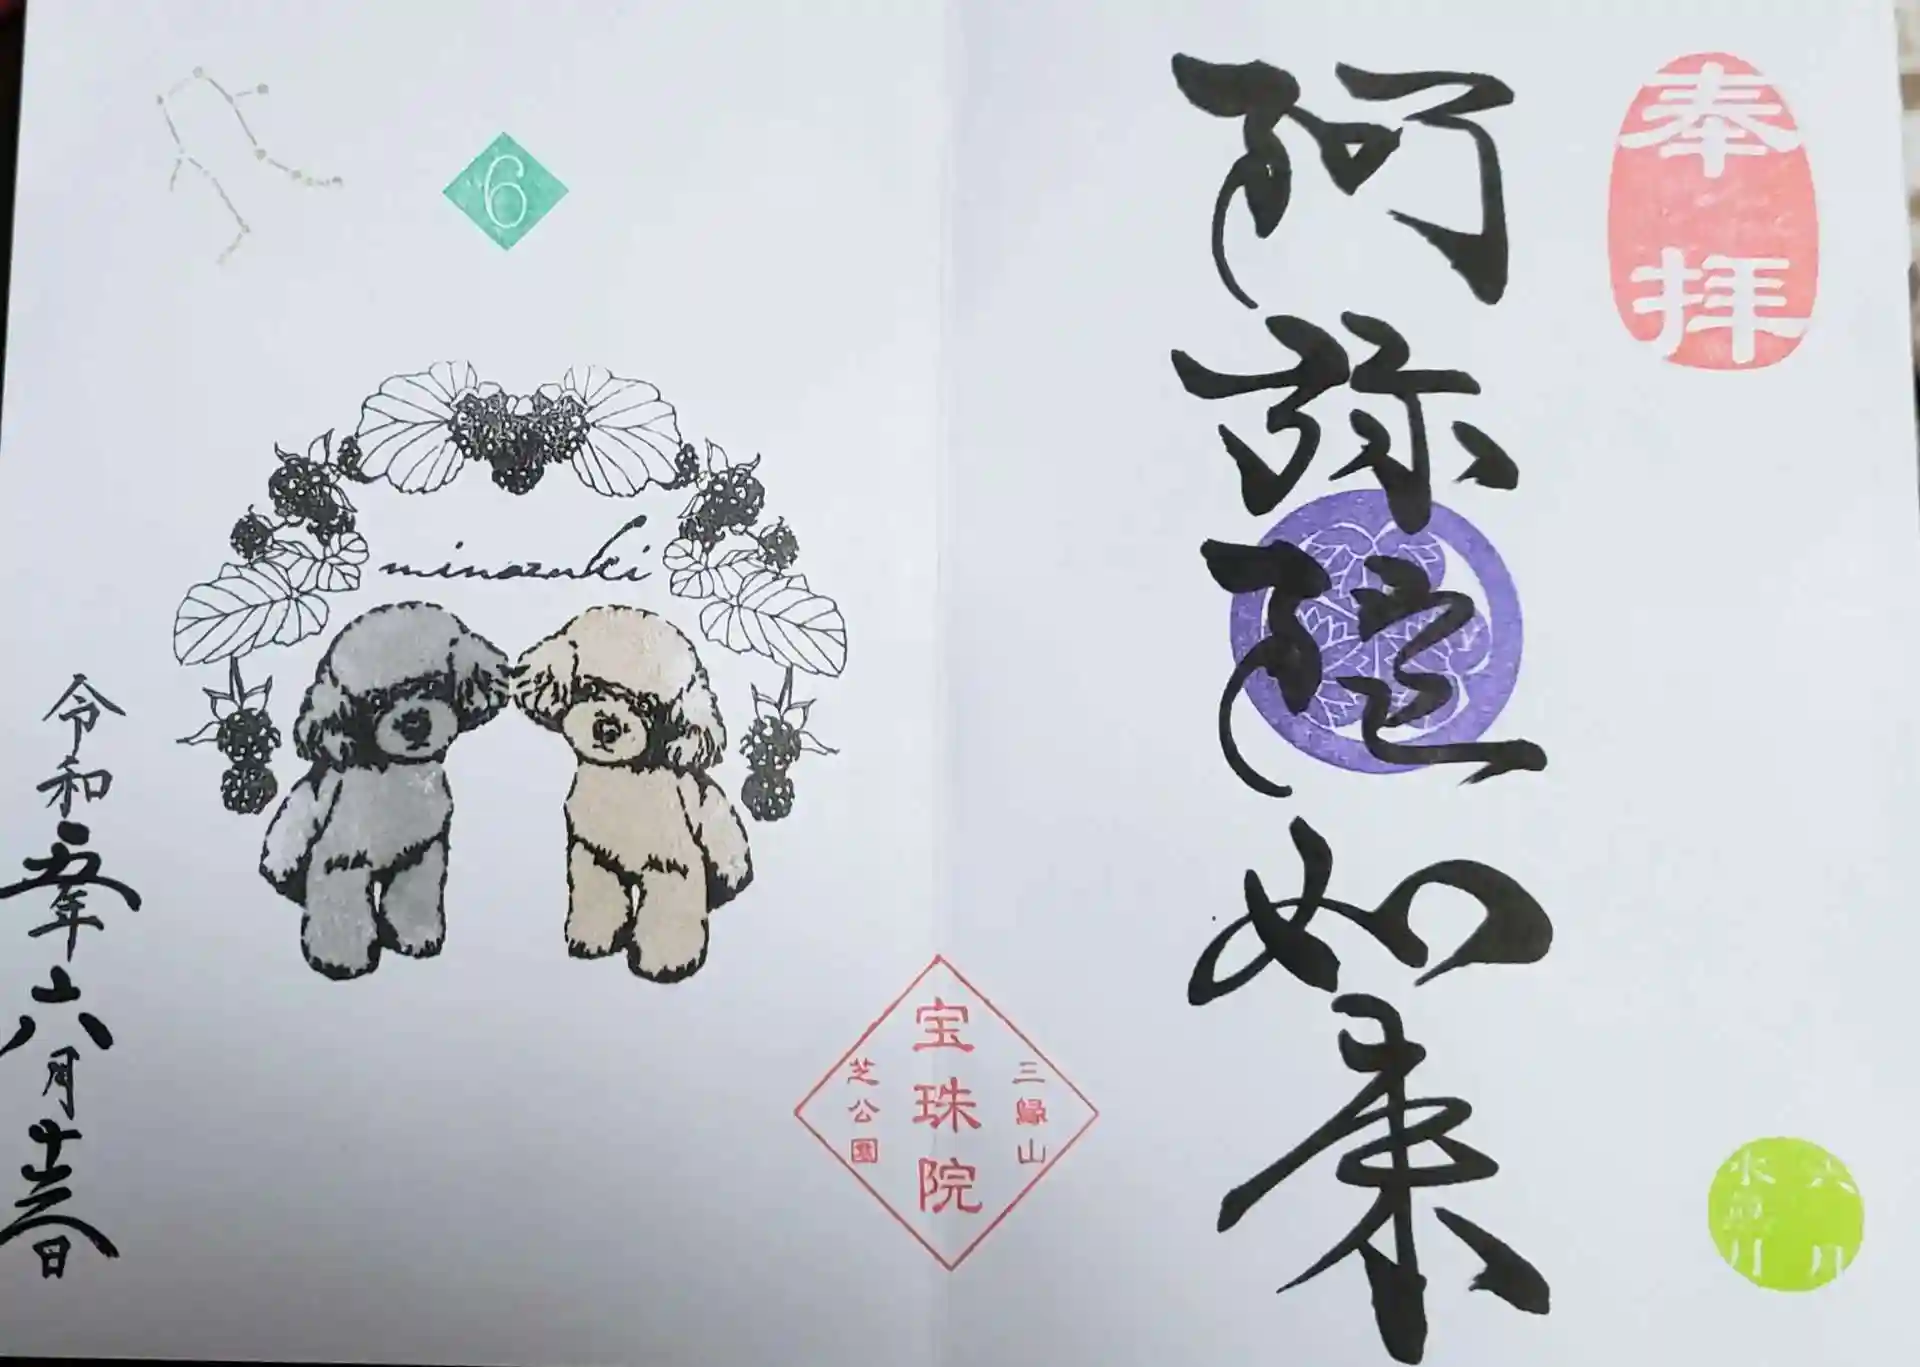 奉拝
六月
水無月
阿弥陀如来
三縁山
宝珠院
芝公園
6
minazuki
令和五年六月日